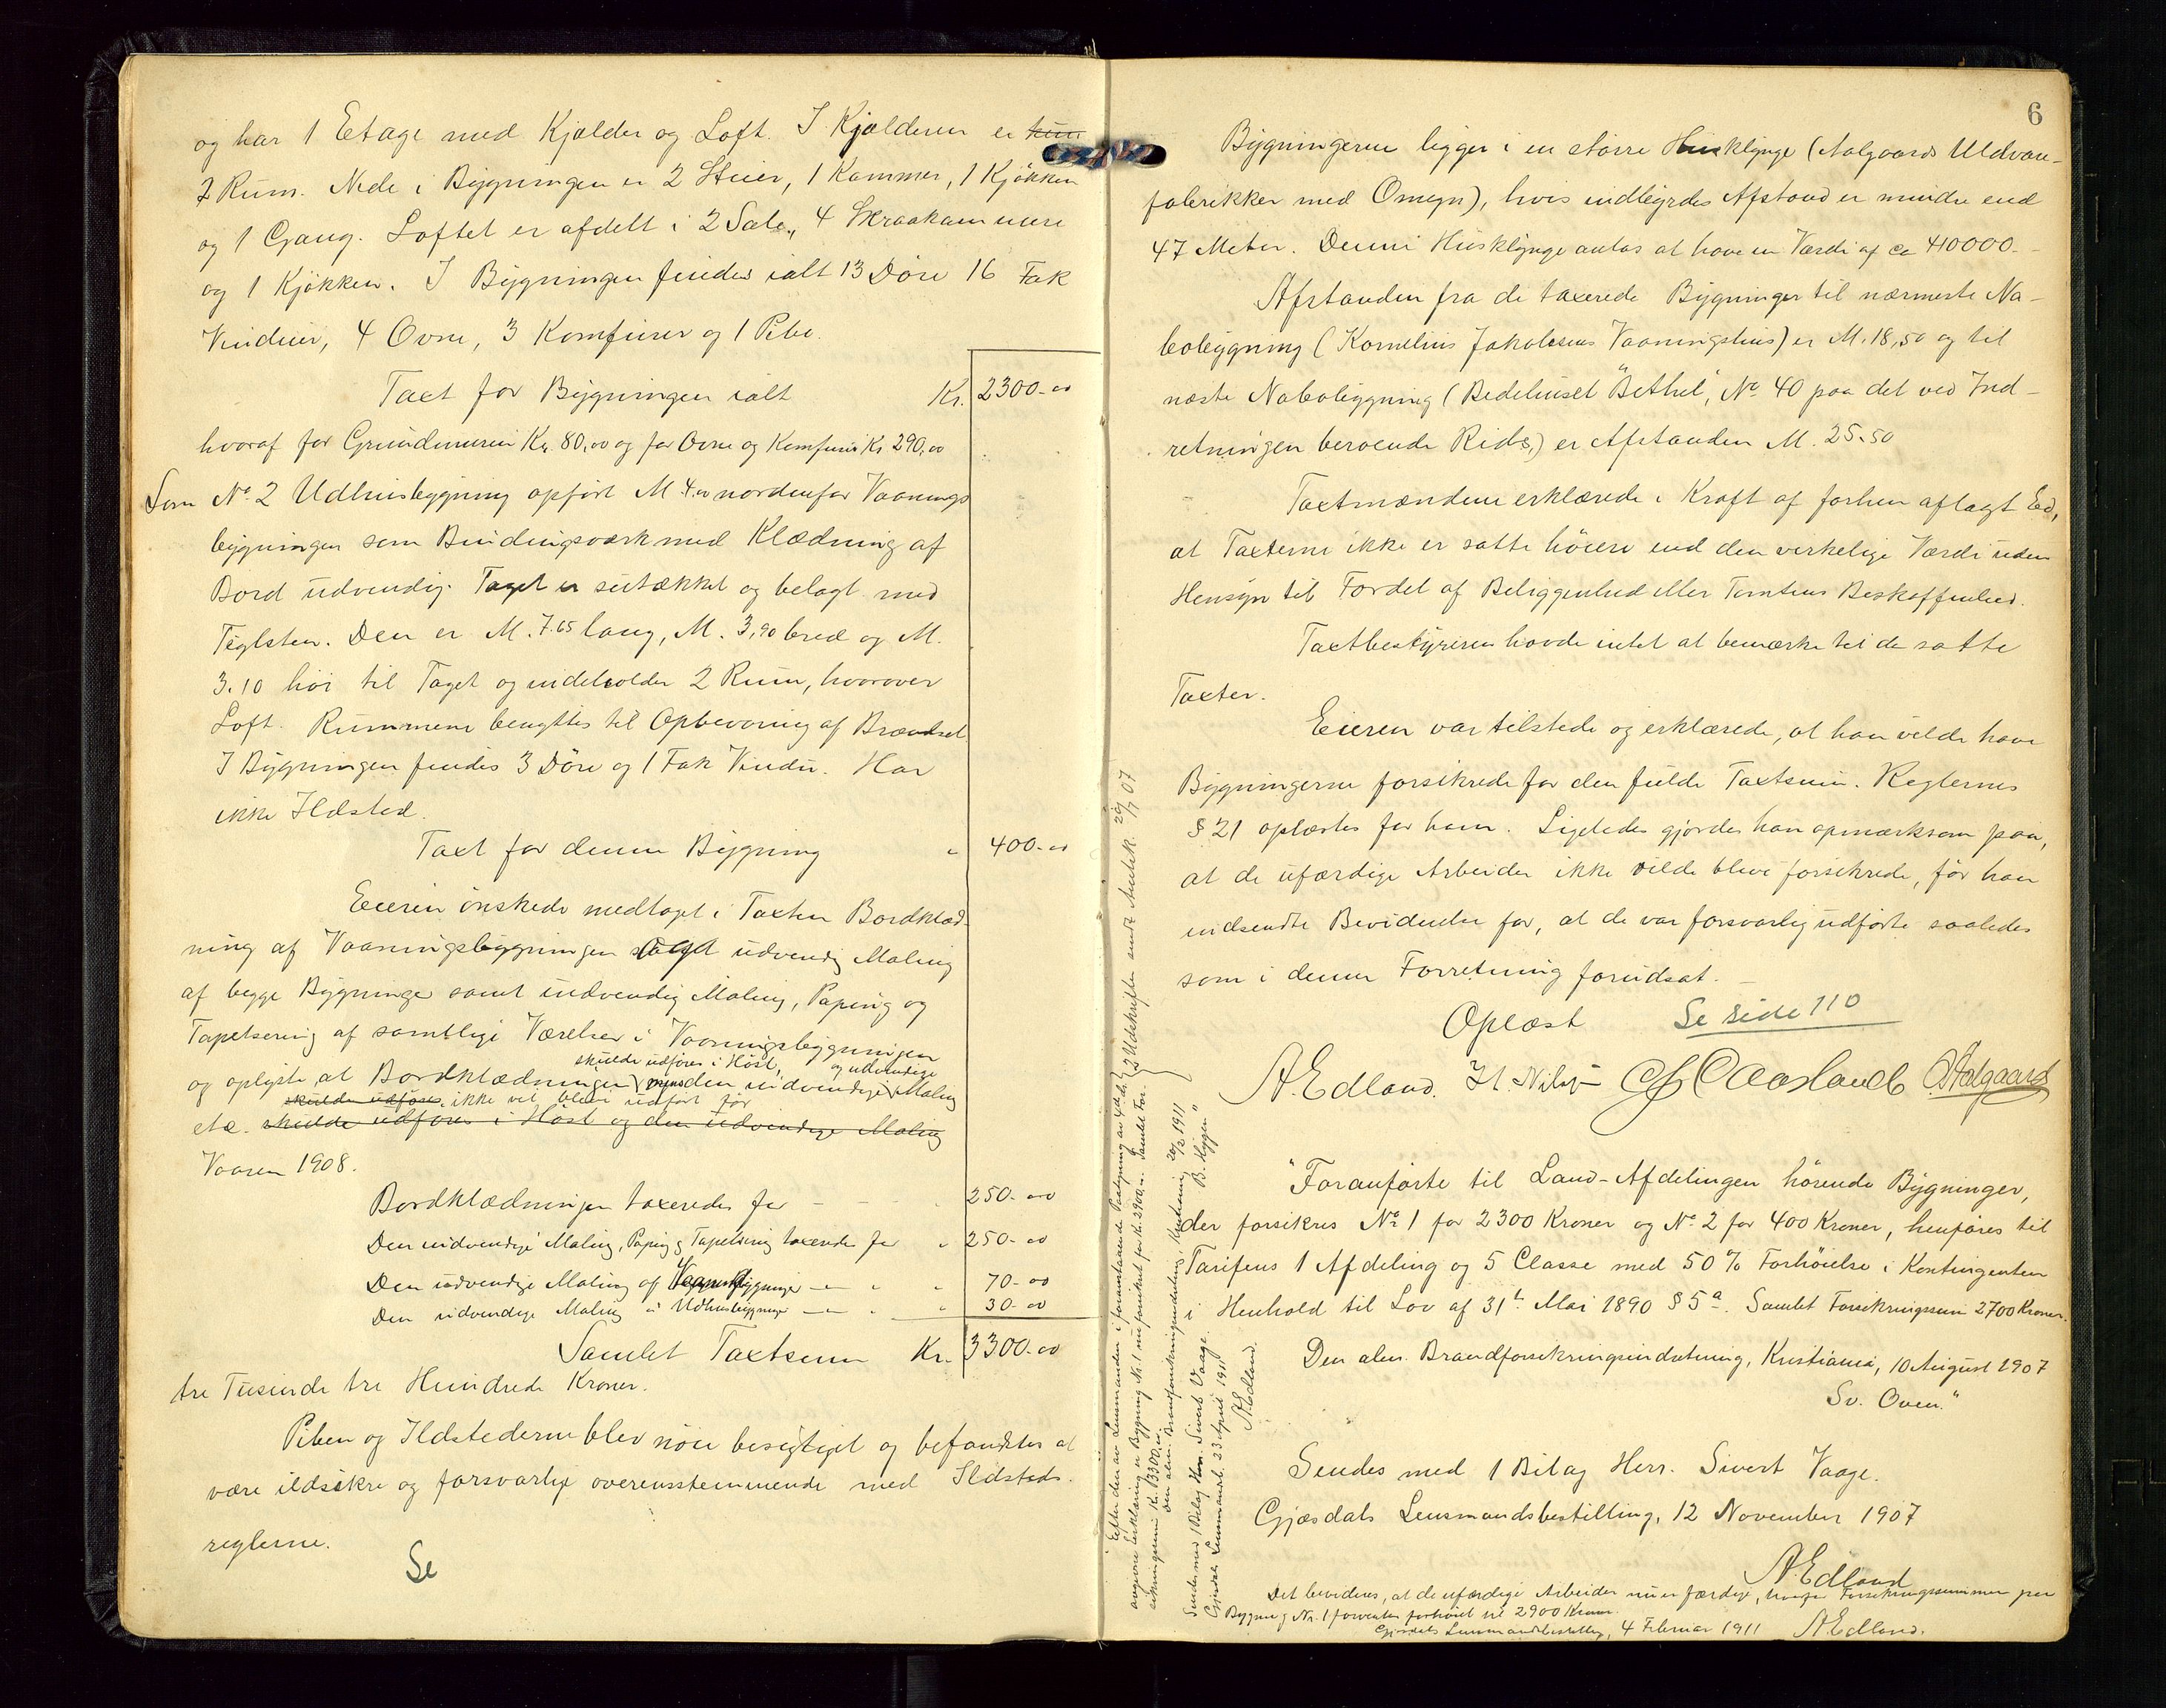 og har 1 Etage med Kjælder og Loft. I Kjælderen er kun
2 Rum. Nede i Bygningen er 2 Stuer, 1 Kammer, 1 Kjøkken
og 1 Gang. Loftet er afdelt i 2 Sale, 4 Skraakammere
og 1 Kjøkken. I Bygningen findes ialt 13 Døre 16 Fak
Vinduer, 4 Ovne, 3 Komfurer og 1 Pibe.
Taxt for Bygningen ialt Kr. 2300-00
hvoraf for Grundmuren Kr. 80,00 og for Ovne og Komfurer Kr 290,00
Som No 2 Udhusbygning opført M 4.00 nordenfor Vaanings
bygningen som Bindingsværk med Klædning af
Bord udvendig. Taget er sutækket og belagt med
Teglsten. Den er M. 7.65 lang, M. 3,90 bred og M.
3.10 høi til Taget og indeholder 2 Rum, hvorover
Loft. Rummene benyttes til Opbevaring af Brændsel
I Bygningen findes 3 Døre og 1 Fak Vindu. Har
ikke Ildsted.
Taxt for denne Bygning " 400-00
Eieren ønskede medtaget i Taxten Bordklæd-
ning af Vaaningsbygningen samt udvendig Maling
af begge Bygninger samt indvendig Maling, Paping og
Tapetsering af samtlige Værelser i Vaaningsbygningen
skulde udføres i Høst, og udvendige
og oplyste, at Bordklædningen mens den indvendige Maling
skulde udføres ikke vil blive udført før
etc. skulde udføres i Høst og den udvendige Maling
Vaaren 1908.
Bordklædningen taxeredes for - - " 250-00
Den indvendige Maling, Paping & Tapetsering taxeredes for " 250-00
Den udvendige Maling af Vaaningsbygningen — " " 70-00
Den udvendige Maling " Udhusbygningen — " " 30-00
Samlet Taxtsum Kr. 3300-00
tre Tusinde tre Hundrede Kroner.
Piben og Ildstederne blev nøie besigtiget og befandtes at
være ildsikre og forsvarlige overensstemmende med Ildsteds-
reglerne.
Se
6
Bygningerne ligger i en større Husklynge (Aalgaards Uldvare-
fabrikker med Omegn), hvis indbyrdes Afstand er mindre end
47 Meter. Denne Husklynge antas at have en Værdi af ca 410000.-
Afstanden fra de taxerede Bygninger til nærmeste Na-
bobygning (Kornelius Jakobsens Vaaningshus) er M. 18,50 og til
næste Nabobygning (Bedehuset "Bethel", No 40 paa det ved Ind-
retningen beroende Rids,) er Afstanden M. 25.50
Taxtmændene erklærede i Kraft af forhen aflagt Ed,
at Taxterne ikke er satte høiere end den virkelige Værdi uden
Hensyn til Fordel af Beliggenhed eller Tomtens Beskaffenhed.
Taxtbestyreren havde intet at bemærke til de satte
Taxter.
Eieren var tilstede og erklærede, at han vilde have
Bygningerne forsikrede for den fulde Taxtsum. Reglernes
§ 21 oplæstes for ham. Ligeledes gjordes han opmærksom paa,
at de ufærdige Arbeider ikke vilde blive forsikrede, før han
indsendte Bevidnelse for, at de var forsvarlig udførte saaledes
som i denne Forretning forudsat.
Oplæst Se side 110
A. Edland.
Aalgaard
"Foranførte til Land-Afdelingen hørende Bygninger,
der forsikres No 1 for 2300 Kroner og No 2 for 400 Kroner, henføres til
Tarifens 1 Afdeling og 5 Classe med 50% Forhøielse i Kontingenten
i Henhold til Lov af 31te Mai 1890 § 5a. Samlet Forsikringssum 2700 Kroner.
Den alm. Brandforsikringsindretning, Kristiania, 10 August 1907
Sv. Oven."
Sendes med 1 Bilag Herr. Sivert Vaage.
Gjæsdals Lensmandsbestilling, 12 November 1907
A. Edland
Det bevidnes, at de ufærdige Arbeider nu er færdige, hvorfor Forsikringssummen paa
Bygning No. 1 forventes forhøiet til 2900 Kroner.
Gjæsdals Lensmandsbestilling, 4 Februar 1911 A. Edland.
2 Udskrifter sendt Amtsk. 29/7 07
Efter den av Lensmanden i foranstaaende Paategning av 4 ds.
avgivne Erklæring er Bygning Nr. 1 nu forsikret for Kr. 2900,00. Samlet For-
sikringssum Kr. 3300,00.
Den alm. Brandforsikringsindretning, Kristiania, 20/2 1911
Sendes med 1 Bilag Herr. Sivert Vaage.
Gjæsdal Lensmandsb. 23 April 1911
A. Edland.